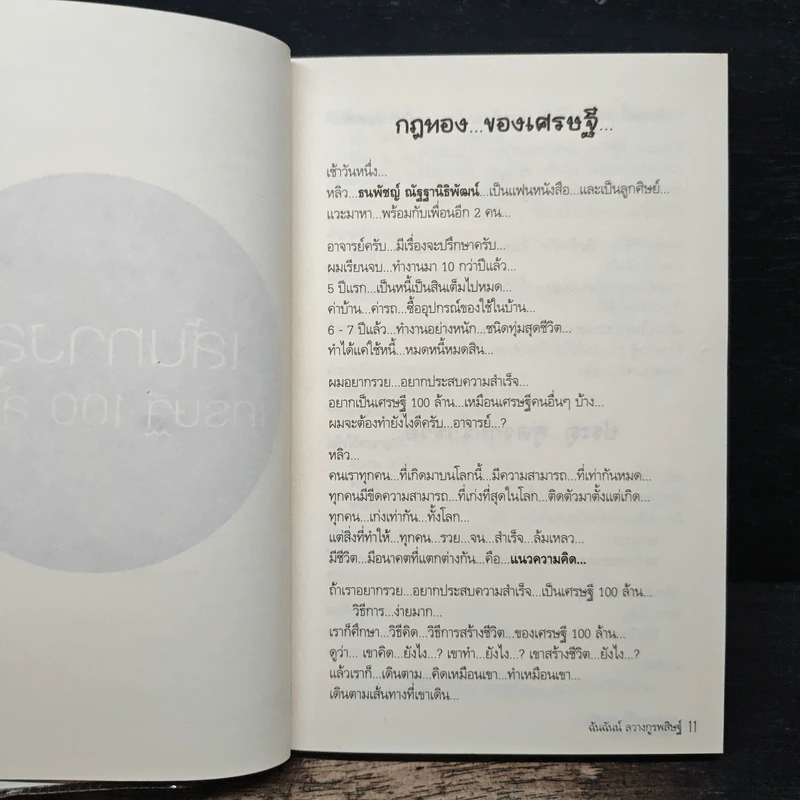 กฎทอง...ของเศรษฐี...
เช้าวันหนึ่ง...
หลิว...ธนพัชญ์ ณัฐฐานิธิพัฒน์...เป็นแฟนหนังสือ...และเป็นลูกศิษย์...
แวะมาหา...พร้อมกับเพื่อนอีก 2 คน...
อาจารย์ครับ...มีเรื่องจะปรึกษาครับ...
ผมเรียนจบ...ทำงานมา 10 กว่าปีแล้ว...
5 ปีแรก...เป็นหนี้เป็นสินเต็มไปหมด...
ค่าบ้าน...ค่ารถ...ซื้ออุปกรณ์ของใช้ในบ้าน...
6 - 7 ปีแล้ว...ทำงานอย่างหนัก...ชนิดทุ่มสุดชีวิต...
ทำได้แค่ใช้หนี้...หมดหนี้หมดสิน...
ผมอยากรวย...อยากประสบความสำเร็จ...
อยากเป็นเศรษฐี 100 ล้าน...เหมือนเศรษฐีคนอื่นๆ บ้าง...
ผมจะต้องทำยังไงดีครับ...อาจารย์...?
หลิว...
คนเราทุกคน...ที่เกิดมาบนโลกนี้...มีความสามารถ...ที่เท่ากันหมด...
ทุกคนมีขีดความสามารถ...ที่เก่งที่สุดในโลก...ติดตัวมาตั้งแต่เกิด...
ทุกคน...เก่งเท่ากัน...ทั้งโลก...
แต่สิ่งที่ทำให้...ทุกคน...รวย...จน...สำเร็จ...ล้มเหลว...
มีชีวิต...มีอนาคตที่แตกต่างกัน...คือ...แนวความคิด...
ถ้าเราอยากรวย...อยากประสบความสำเร็จ...เป็นเศรษฐี 100 ล้าน...
วิธีการ...ง่ายมาก...
เราก็ศึกษา...วิธีคิด...วิธีการสร้างชีวิต...ของเศรษฐี 100 ล้าน...
ดูว่า... เขาคิด...ยังไง...? เขาทำ...ยังไง...? เขาสร้างชีวิต...ยังไง...?
แล้วเราก็...เดินตาม...คิดเหมือนเขา...ทำเหมือนเขา...
เดินตามเส้นทางที่เขาเดิน...
ฉันฉันน์ ลวางกูรพสิษฐ์ 11